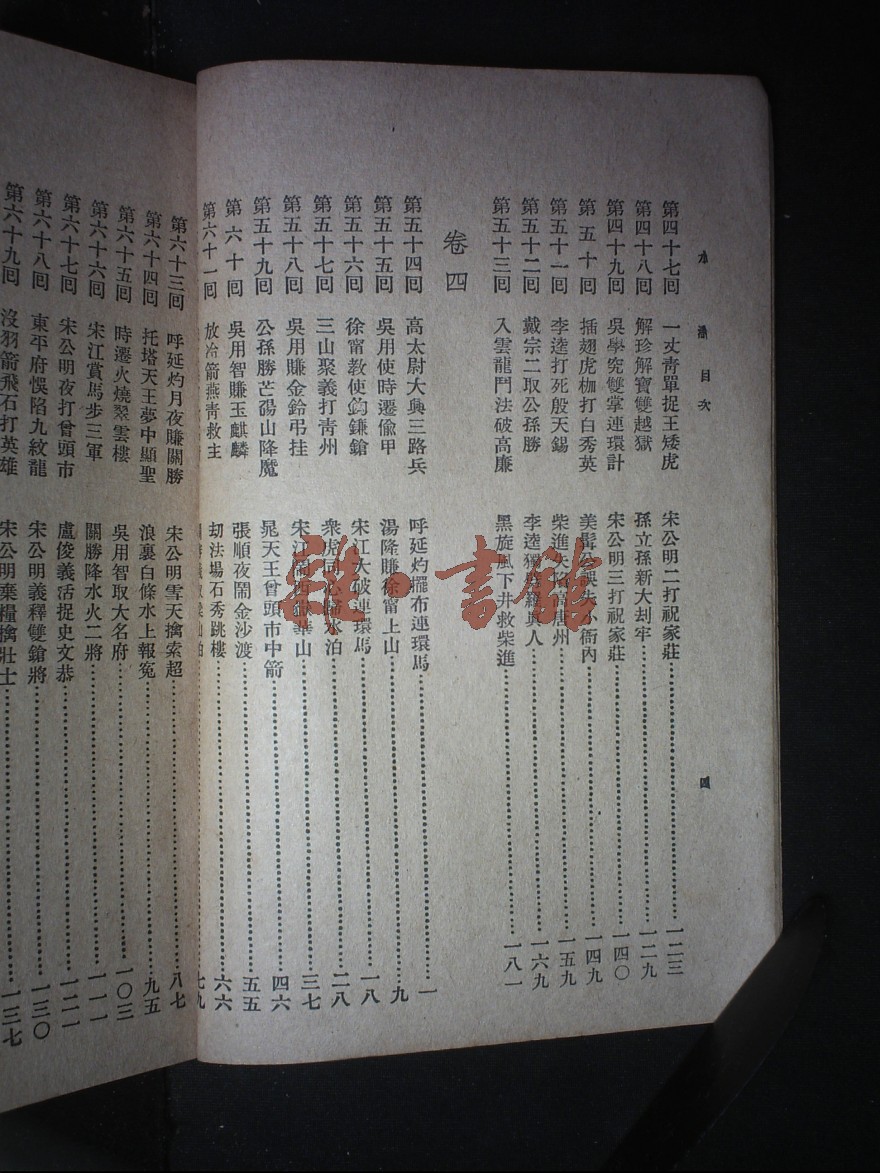 水滸 目次 四
第四十七回 一丈靑單捉王矮虎 宋公明二打祝家莊 一二三
第四十八回 解珍解寶雙越獄 孫立孫新大刦牢 一二九
第四十九回 吳學究雙掌連環計 宋公明三打祝家莊 一四〇
第五十回 插翅虎枷打白秀英 美髯公誤失小衙內 一四九
第五十一回 李逵打死殷天錫 柴進失陷高唐州 一五九
第五十二回 戴宗二取公孫勝 李逵獨劈羅眞人 一六九
第五十三回 入雲龍鬥法破高廉 黑旋風下井救柴進 一八一
卷四
第五十四回 高太尉大興三路兵 呼延灼擺布連環馬 一
第五十五回 吳用使時遷偸甲 湯隆賺徐甯上山 九
第五十六回 徐甯教使鈎鐮鎗 宋江大破連環馬 一八
第五十七回 三山聚義打靑州 衆虎同心歸水泊 二八
第五十八回 吳用賺金鈴弔挂 宋江鬧西嶽華山 三七
第五十九回 公孫勝芒碭山降魔 晁天王曾頭市中箭 四六
第六十回 吳用智賺玉麒麟 張順夜鬧金沙渡 五五
第六十一回 放冷箭燕靑救主 刧法場石秀跳樓 六六
七九
第六十三回 呼延灼月夜賺關勝 宋公明雪天擒索超 八七
第六十四回 托塔天王夢中顯聖 浪裏白條水上報冤 九五
第六十五回 時遷火燒翠雲樓 吳用智取大名府 一〇三
第六十六回 宋江賞馬步三軍 關勝降水火二將 一一一
第六十七回 宋公明夜打曾頭市 盧俊義活捉史文恭 一二一
第六十八回 東平府悞陷九紋龍 宋公明義釋雙鎗將 一三〇
第六十九回 沒羽箭飛石打英雄 宋公明棄糧擒壯士 一三七